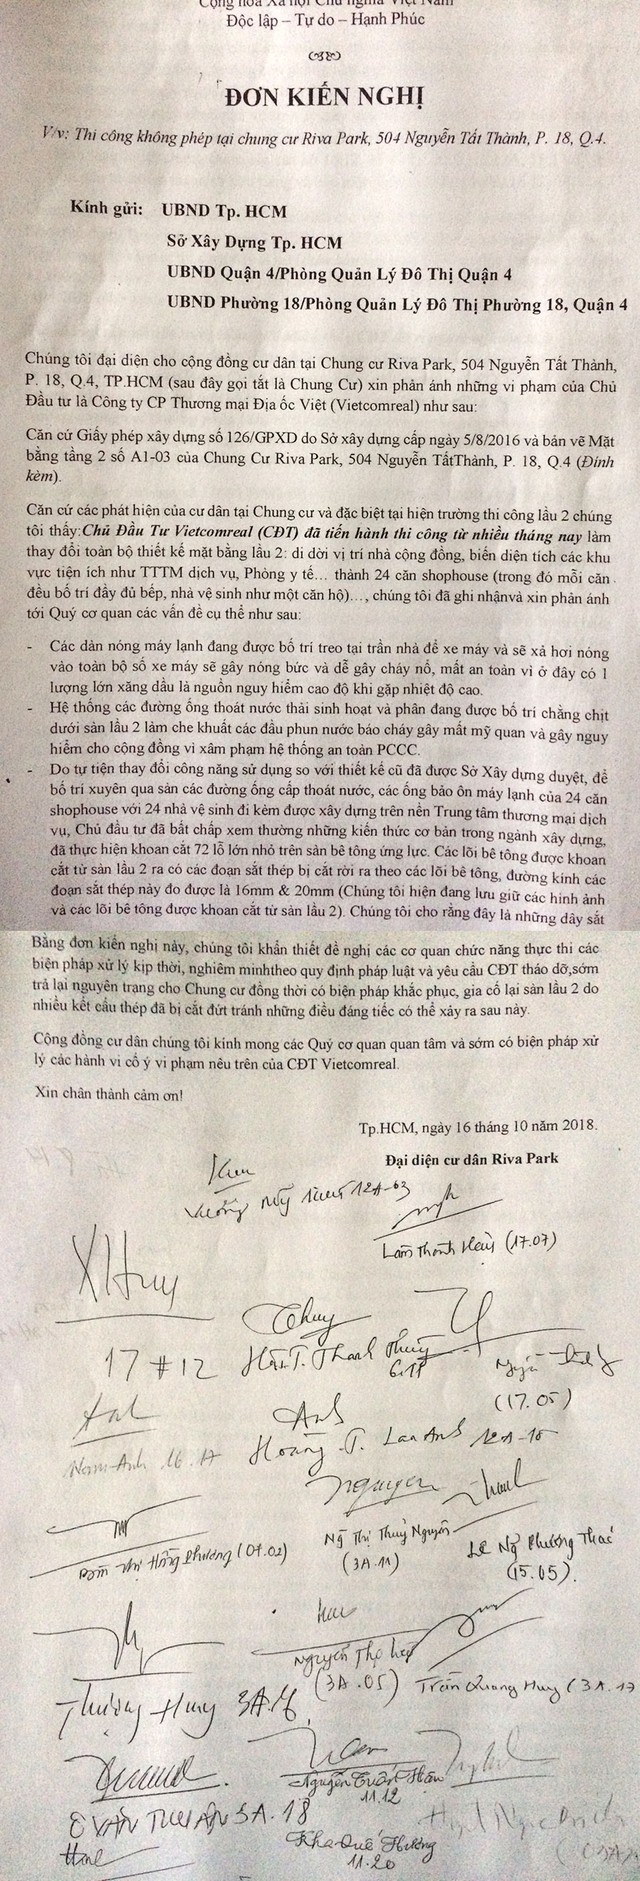 Cộng hòa Xã hội Chủ nghĩa Việt Nam
Độc lập – Tự do – Hạnh Phúc
ĐƠN KIẾN NGHỊ
V/v: Thi công không phép tại chung cư Riva Park, 504 Nguyễn Tất Thành, P. 18, Q.4.
Kính gửi: UBND Tp. HCM
Sở Xây Dựng Tp. HCM
UBND Quận 4/Phòng Quản Lý Đô Thị Quận 4
UBND Phường 18/Phòng Quản Lý Đô Thị Phường 18, Quận 4
Chúng tôi đại diện cho cộng đồng cư dân tại Chung cư Riva Park, 504 Nguyễn Tất Thành,
P. 18, Q.4, TP.HCM (sau đây gọi tắt là Chung Cư) xin phản ánh những vi phạm của Chủ
Đầu tư là Công ty CP Thương mại Địa ốc Việt (Vietcomreal) như sau:
Căn cứ Giấy phép xây dựng số 126/GPXD do Sở xây dựng cấp ngày 5/8/2016 và bản vẽ Mặt
bằng tầng 2 số A1-03 của Chung Cư Riva Park, 504 Nguyễn TấtThành, P. 18, Q.4 (Đính
kèm).
Căn cứ các phát hiện của cư dân tại Chung cư và đặc biệt tại hiện trường thi công lầu 2 chúng
tôi thấy:Chủ Đầu Tư Vietcomreal (CĐT) đã tiến hành thi công từ nhiều tháng nay làm
thay đổi toàn bộ thiết kế mặt bằng lầu 2: di dời vị trí nhà cộng đồng, biến diện tích các khu
vực tiện ích như TTTM dịch vụ, Phòng y tế… thành 24 căn shophouse (trong đó mỗi căn
đều bố trí đầy đủ bếp, nhà vệ sinh như một căn hộ)…, chúng tôi đã ghi nhậnvà xin phản ánh
tới Quý cơ quan các vấn đề cụ thể như sau:
- Các dàn nóng máy lạnh đang được bố trí treo tại trần nhà để xe máy và sẽ xả hơi nóng
vào toàn bộ số xe máy sẽ gây nóng bức và dễ gây cháy nổ, mất an toàn vì ở đây có 1
lượng lớn xăng dầu là nguồn nguy hiểm cao độ khi gặp nhiệt độ cao.
- Hệ thống các đường ống thoát nước thải sinh hoạt và phân đang được bố trí chằng chịt
dưới sàn lầu 2 làm che khuất các đầu phun nước báo cháy gây mất mỹ quan và gây nguy
hiểm cho cộng đồng vì xâm phạm hệ thống an toàn PCCC.
- Do tự tiện thay đổi công năng sử dụng so với thiết kế cũ đã được Sở Xây dựng duyệt, để
bố trí xuyên qua sàn các đường ống cấp thoát nước, các ống bảo ôn máy lạnh của 24 căn
shophouse với 24 nhà vệ sinh đi kèm được xây dựng trên nền Trung tâm thương mại dịch
vụ, Chủ đầu tư đã bất chấp xem thường những kiến thức cơ bản trong ngành xây dựng,
đã thực hiện khoan cắt 72 lỗ lớn nhỏ trên sàn bê tông ứng lực. Các lõi bê tông được khoan
cắt từ sàn lầu 2 ra có các đoạn sắt thép bị cắt rời ra theo các lõi bê tông, đường kính các
đoạn sắt thép này đo được là 16mm & 20mm (Chúng tôi hiện đang lưu giữ các hình ảnh
và các lõi bê tông được khoan cắt từ sàn lầu 2). Chúng tôi cho rằng đây là những dây sắt
Bằng đơn kiến nghị này, chúng tôi khẩn thiết đề nghị các cơ quan chức năng thực thi các
biện pháp xử lý kịp thời, nghiêm minhtheo quy định pháp luật và yêu cầu CĐT tháo dỡ,sớm
trả lại nguyên trạng cho Chung cư đồng thời có biện pháp khắc phục, gia cố lại sàn lầu 2 do
nhiều kết cấu thép đã bị cắt đứt tránh những điều đáng tiếc có thể xảy ra sau này.
Cộng đồng cư dân chúng tôi kính mong các Quý cơ quan quan tâm và sớm có biện pháp xử
lý các hành vi cố ý vi phạm nêu trên của CĐT Vietcomreal.
Xin chân thành cảm ơn!
Tp.HCM, ngày 16 tháng 10 năm 2018.
Đại diện cư dân Riva Park
12A-03
Lâm Thanh (17.07)
XHuy
Thuy
17 # 12 T. Thanh Thủy
6.11
Nguyễn
(17.05)
Anh
Nam Anh 16.
Hoàng T. Lan Anh 12A-10
Nguyen
Thị Hồng Phương (07.02)
Ng Thị Thuý Nguyên
(3A.11)
Lê Ng Phương Thảo
(15.05).
Nguyễn Thọ
(3A.05)
Trần Quang Huy (3A.17
Huy 3A.
Nguyễn Tuấn
11.12
VĂN THUẬN 3A.18
Kha Quế Hương
11.20